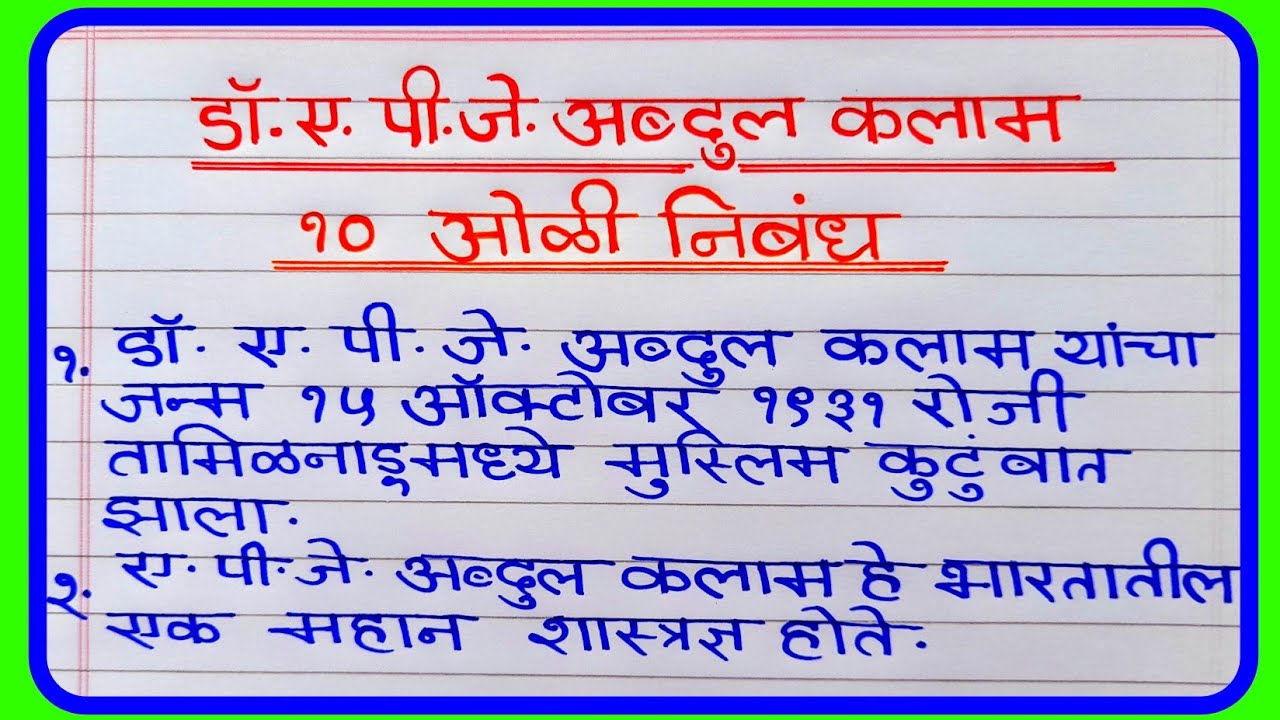 डॉ. ए. पी. जे. अब्दुल कलाम
१० ओळी निबंध
१. डॉ. ए. पी. जे. अब्दुल कलाम यांचा
जन्म १५ ऑक्टोबर १९३१ रोजी
तामिळनाडूमध्ये मुस्लिम कुटुंबात
झाला.
२. ए. पी. जे. अब्दुल कलाम हे भारतातील
एक महान शास्त्रज्ञ होते.